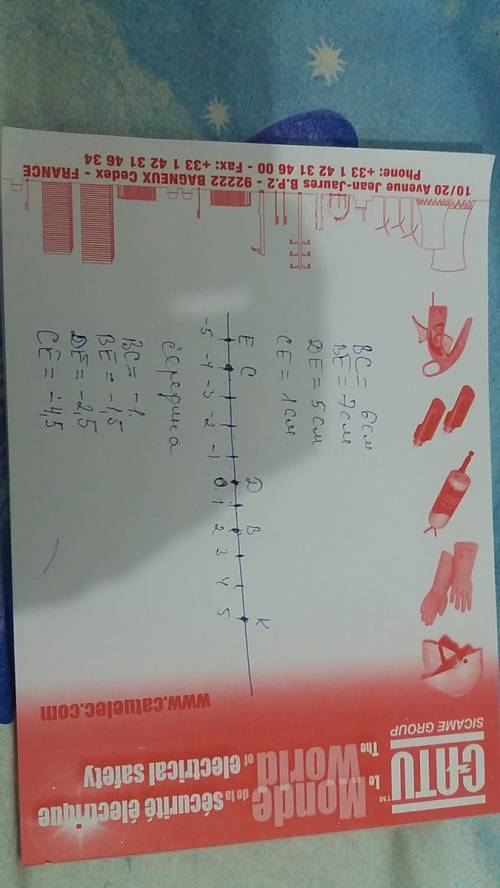 10/20 Avenue Jean-Jaures B.P.2 - 92222 BAGNEUX Cedex - FRANCE
Phone: +33 1 42 31 46 00 - Fax: +33 1 42 31 46 34
BC = 6см.
BE = 7см.
DE = 5см.
CE = 1см
E C D B K
-5 -4 -3 -2 -1 0 1 2 3 4 5
середина
BC = -1.
BE = -1,5
DE = -2,5
CE = -4,5
CATU™
SICAME GROUP
Le Monde de la sécurité électrique
The World of electrical safety
www.catuelec.com